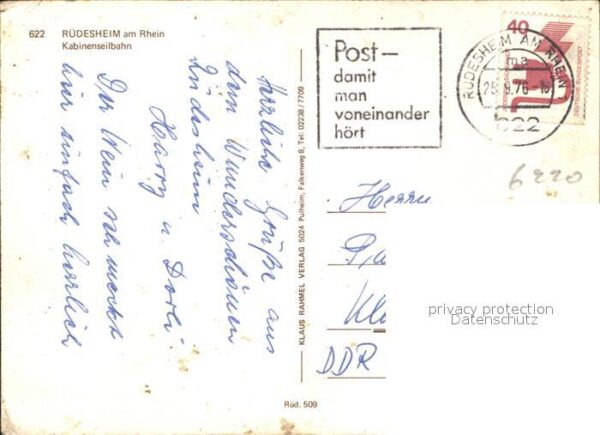 622 RÜDESHEIM am Rhein
Kabinenseilbahn
Post—
damit
man
voneinander
hört
40
DEUTSCHE BUNDESPOST
RÜDESHEIM AM RHEIN
ma
9.76
622
6220
Herzliche Grüße aus
dem Wunderschönen
Rüdesheim
Harry u. Dorle
Der Wein schmeckt
hier einfach herrlich
KLAUS RAHMEL VERLAG 5024 Pulheim, Falkenweg 8, Tel: 02238/7709
Herrn
Kl
DDR
privacy protection
Datenschutz
Rüd. 509